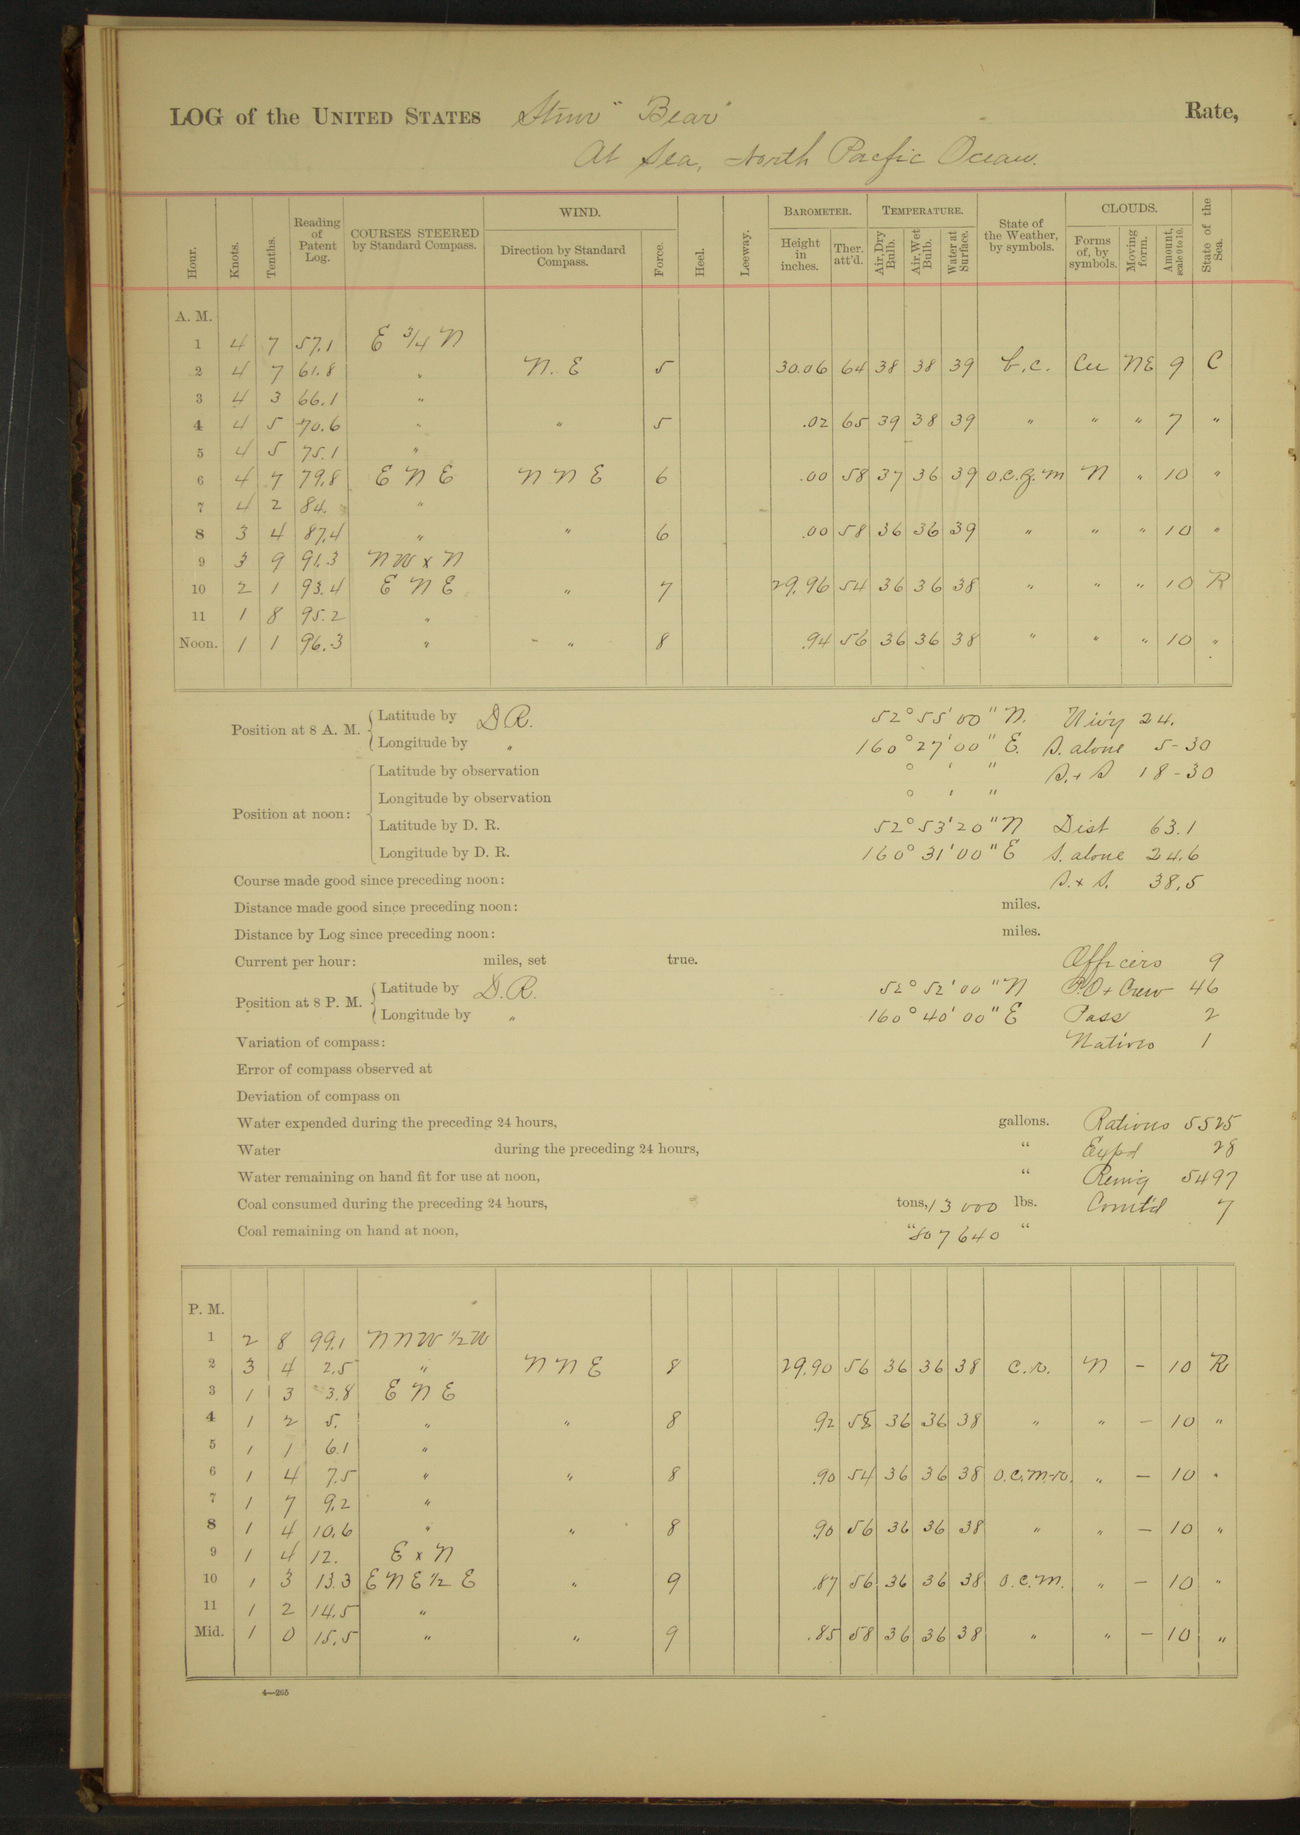 LOG of the UNITED STATES Stmr "Bear" Rate,
At Sea, North Pacific Ocean.
Hour. Knots. Tenths. Reading of Patent Log. COURSES STEERED by Standard Compass. WIND. Direction by Standard Compass. Force. Heel. Leeway. BAROMETER. Height in inches. Ther. att'd. TEMPERATURE. Air, Dry Bulb. Air, Wet Bulb. Water at Surface. State of the Weather, by symbols. CLOUDS. Forms of, by symbols. Moving form. Amount, scale 0 to 10. State of the Sea.
A. M.
1 4 7 57.1 E 3/4 N
2 4 7 61.8 " N. E 5 30.06 64 38 38 39 b.c. Cu NE 9 C
3 4 3 66.1 "
4 4 5 70.6 " " 5 .02 65 39 38 39 " " " 7 "
5 4 5 75.1 "
6 4 7 79.8 E N E N N E 6 .00 58 37 36 39 o.c.g.m N " 10 "
7 4 2 84. "
8 3 4 87.4 " " 6 .00 58 36 36 39 " " " 10 "
9 3 9 91.3 NW x N
10 2 1 93.4 E N E " 7 29.96 54 36 36 38 " " " 10 R
11 1 8 95.2 "
Noon. 1 1 96.3 " " 8 .94 56 36 36 38 " " " 10 "
Position at 8 A. M. Latitude by D R. 52° 55' 00" N. 24.
Longitude by " 160° 27' 00" E. S. alone 5-30
Position at noon: Latitude by observation ° ' " S. + S 18-30
Longitude by observation ° ' "
Latitude by D. R. 52° 53' 20" N Dist 63.1
Longitude by D. R. 160° 31' 00" E S. alone 24.6
Course made good since preceding noon: S. + S. 38.5
Distance made good since preceding noon: miles.
Distance by Log since preceding noon: miles.
Current per hour: miles, set true. Officers 9
Position at 8 P. M. Latitude by D. R. 52° 52' 00" N P.O + Crew 46
Longitude by " 160° 40' 00" E Pass 2
Variation of compass: Natives 1
Error of compass observed at
Deviation of compass on
Water expended during the preceding 24 hours, gallons. Rations 5525
Water during the preceding 24 hours, " Expd 28
Water remaining on hand fit for use at noon, " Remg 5497
Coal consumed during the preceding 24 hours, tons, 13 000 lbs. Comt'd 7
Coal remaining on hand at noon, " 807640 "
P. M.
1 2 8 99.1 N N W 1/2 W
2 3 4 2.5 " N N E 8 29.90 56 36 36 38 c.r. N - 10 R
3 1 3 3.8 E N E
4 1 2 5. " " 8 .92 58 36 36 38 " " - 10 "
5 1 1 6.1 "
6 1 4 7.5 " " 8 .90 54 36 36 38 o.c.m.r. " - 10 "
7 1 7 9.2 "
8 1 4 10.6 " " 8 .90 56 36 36 38 " " - 10 "
9 1 4 12. E x N
10 1 3 13.3 E N E 1/2 E " 9 .87 56 36 36 38 o.c.m. " - 10 "
11 1 2 14.5 "
Mid. 1 0 15.5 " " 9 .85 58 36 36 38 " " - 10 "
4—265